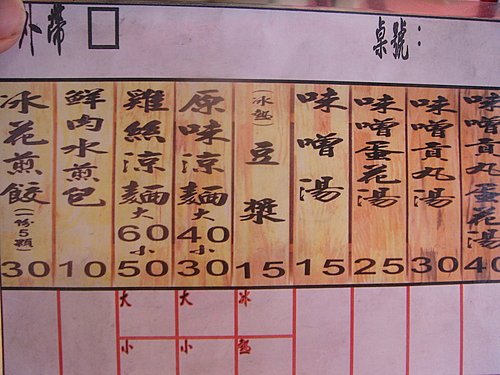 外帶 □
桌號：
冰花煎餃(一份5顆) 30
鮮肉水煎包 10
雞絲涼麵 大60 小50
原味涼麵 大40 小30
(冰熱)豆漿 15
味噌湯 15
味噌蛋花湯 25
味噌貢丸湯 30
味噌貢丸蛋花湯 40
大 大 冰
小 小 熱